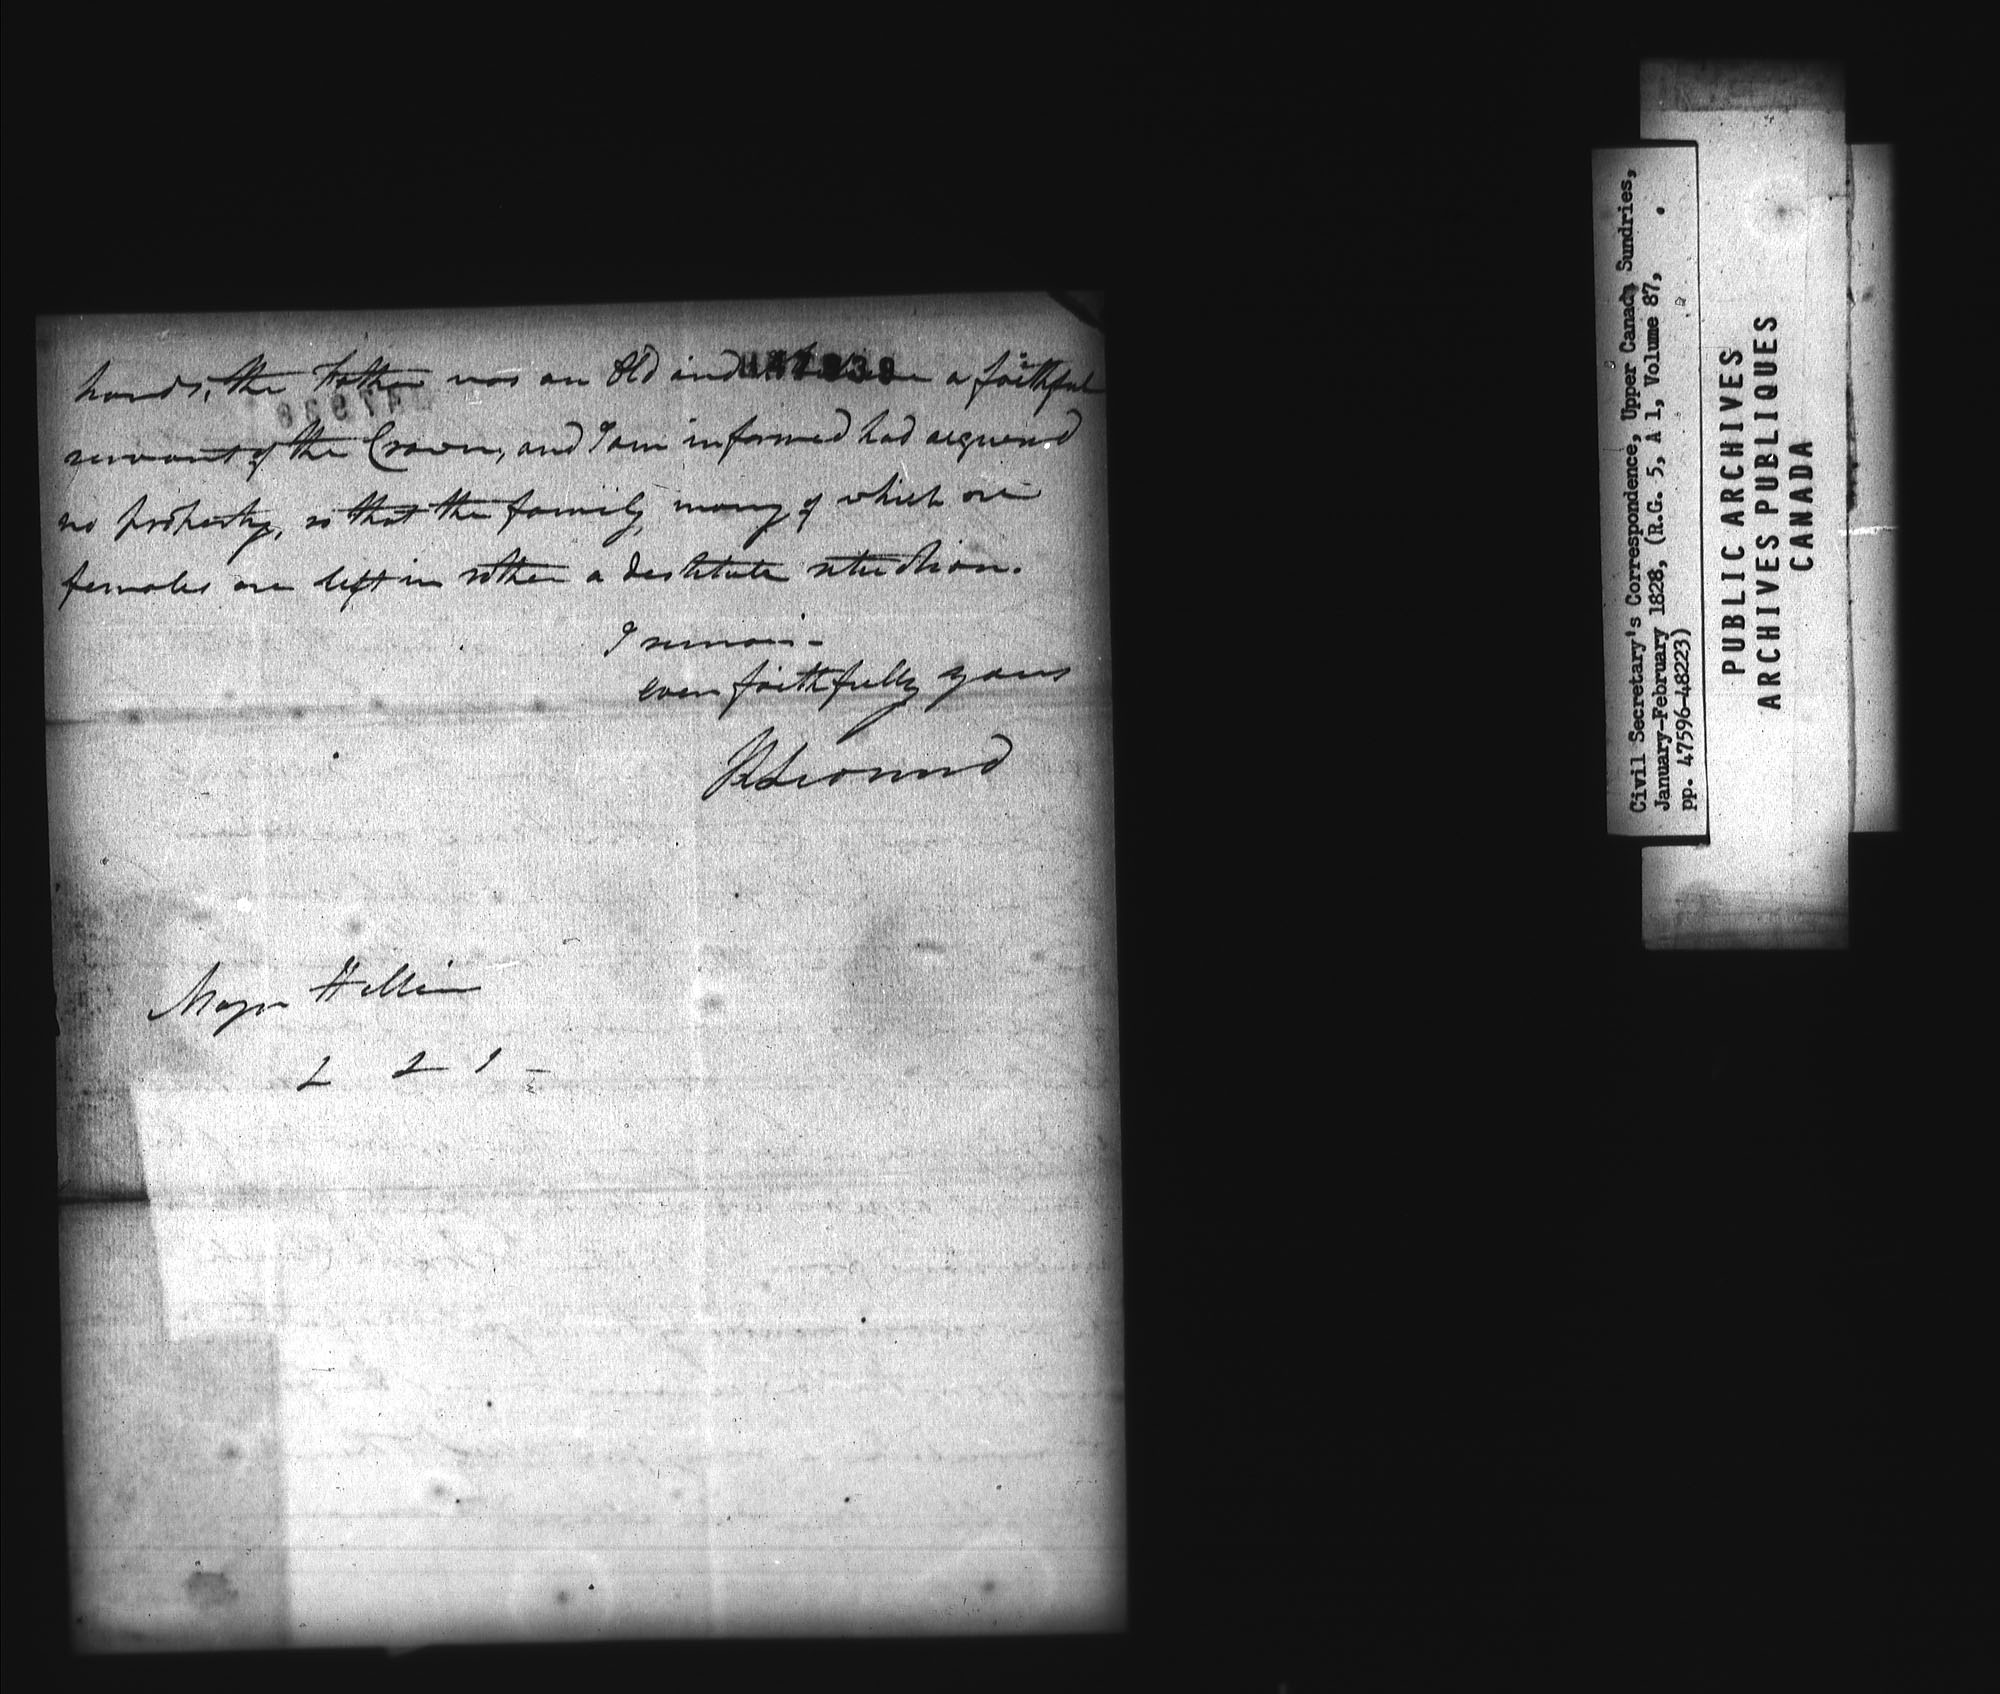 hands, the Father was an Old and a faithful
servant of the Crown, and I am informed had acquired
no property, so that the family, many of which are
females are left in rather a destitute situation.
I remain
ever faithfully yours
R Leonard
Major Hillier
Civil Secretary's Correspondence, Upper Canada Sundries,
January-February 1828, (R.G. 5, A 1, Volume 87,
pp. 47596-48223)
PUBLIC ARCHIVES
ARCHIVES PUBLIQUES
CANADA